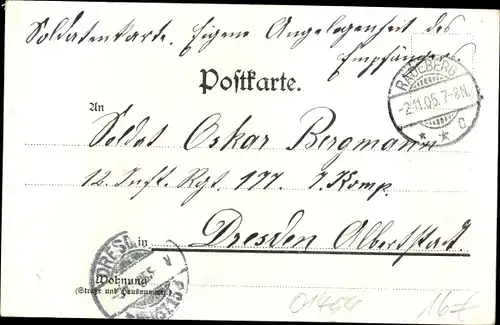 Soldatenkarte. Eigene Angelegenheit des
Empfängers.
Postkarte.
RADEBERG
-2.11.05. 7-8N.
* * C
An
Soldat Oskar Bergmann
12. Inft. Rgt. 177. 7 Komp.
in Dresden Albertstadt.
DRESD
Wohnung
(Straße und Hausnummer)
01764
16€